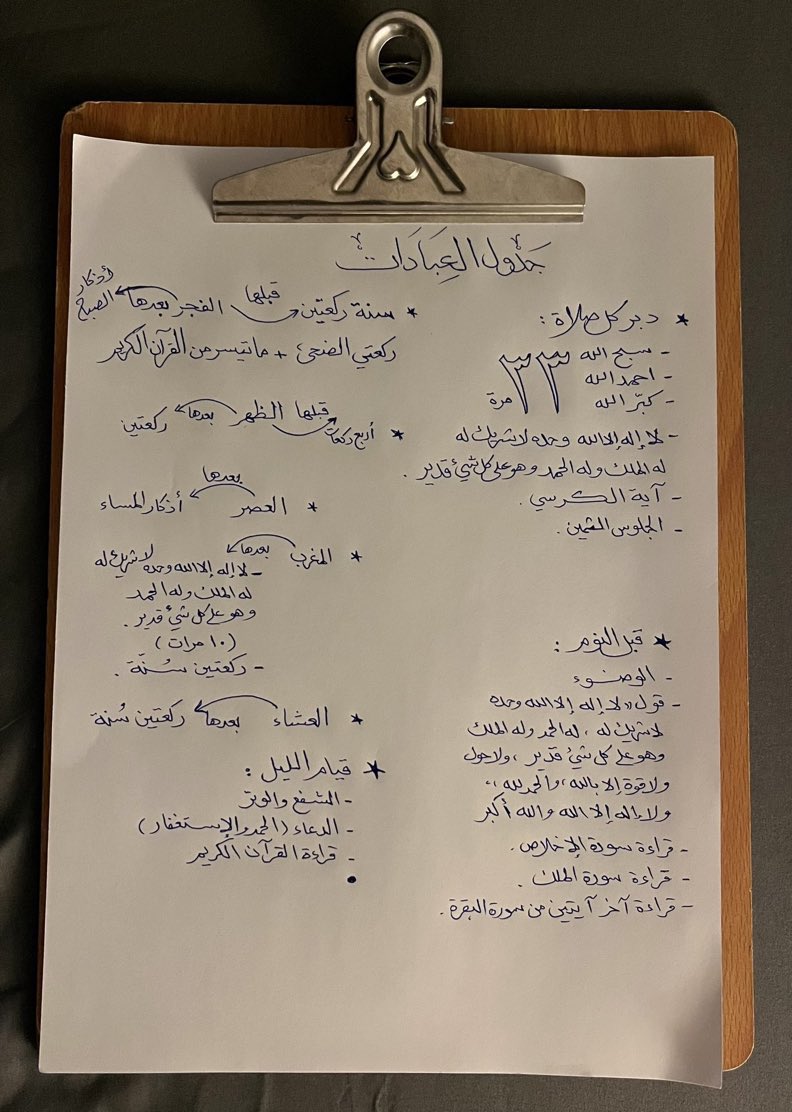 جدول العِبَادَات
* دبر كل صلاة :
- سبح الله
- احمد الله
- كبّر الله
٣٣ مرة
- لا إله إلا الله وحده لا شريك له
له الملك وله الحمد وهو على كل شيئ قدير .
- آية الكرسي .
- الجلوس الثمين .
* قبل النوم :
- الوضوء
- قول " لا إله إلا الله وحده
لا شريك له ، له الحمد وله الملك
وهو على كل شيئ قدير ، ولا حول
ولا قوة إلا بالله ، والحمد لله ،،
ولا إله إلا الله والله أكبر
- قراءة سورة الإخلاص .
- قراءة سورة الملك .
- قراءة آخر آيتين من سورة البقرة .
* سنة ركعتين قبلها الفجر بعدها أذكار الصباح
ركعتي الضحى + ما تيسر من القرآن الكريم
* أربع ركعات قبلها الظهر بعدها ركعتين
* العصر بعدها أذكار المساء
* المغرب بعدها
- لا إله إلا الله وحده لا شريك له
له الملك وله الحمد
وهو على كل شيئ قدير .
(١٠ مرات)
- ركعتين سُنّة .
* العشاء بعدها ركعتين سُنة
* قيام الليل :
- الشفع والوتر
- الدعاء (الحمد والإستغفار)
- قراءة القرآن الكريم